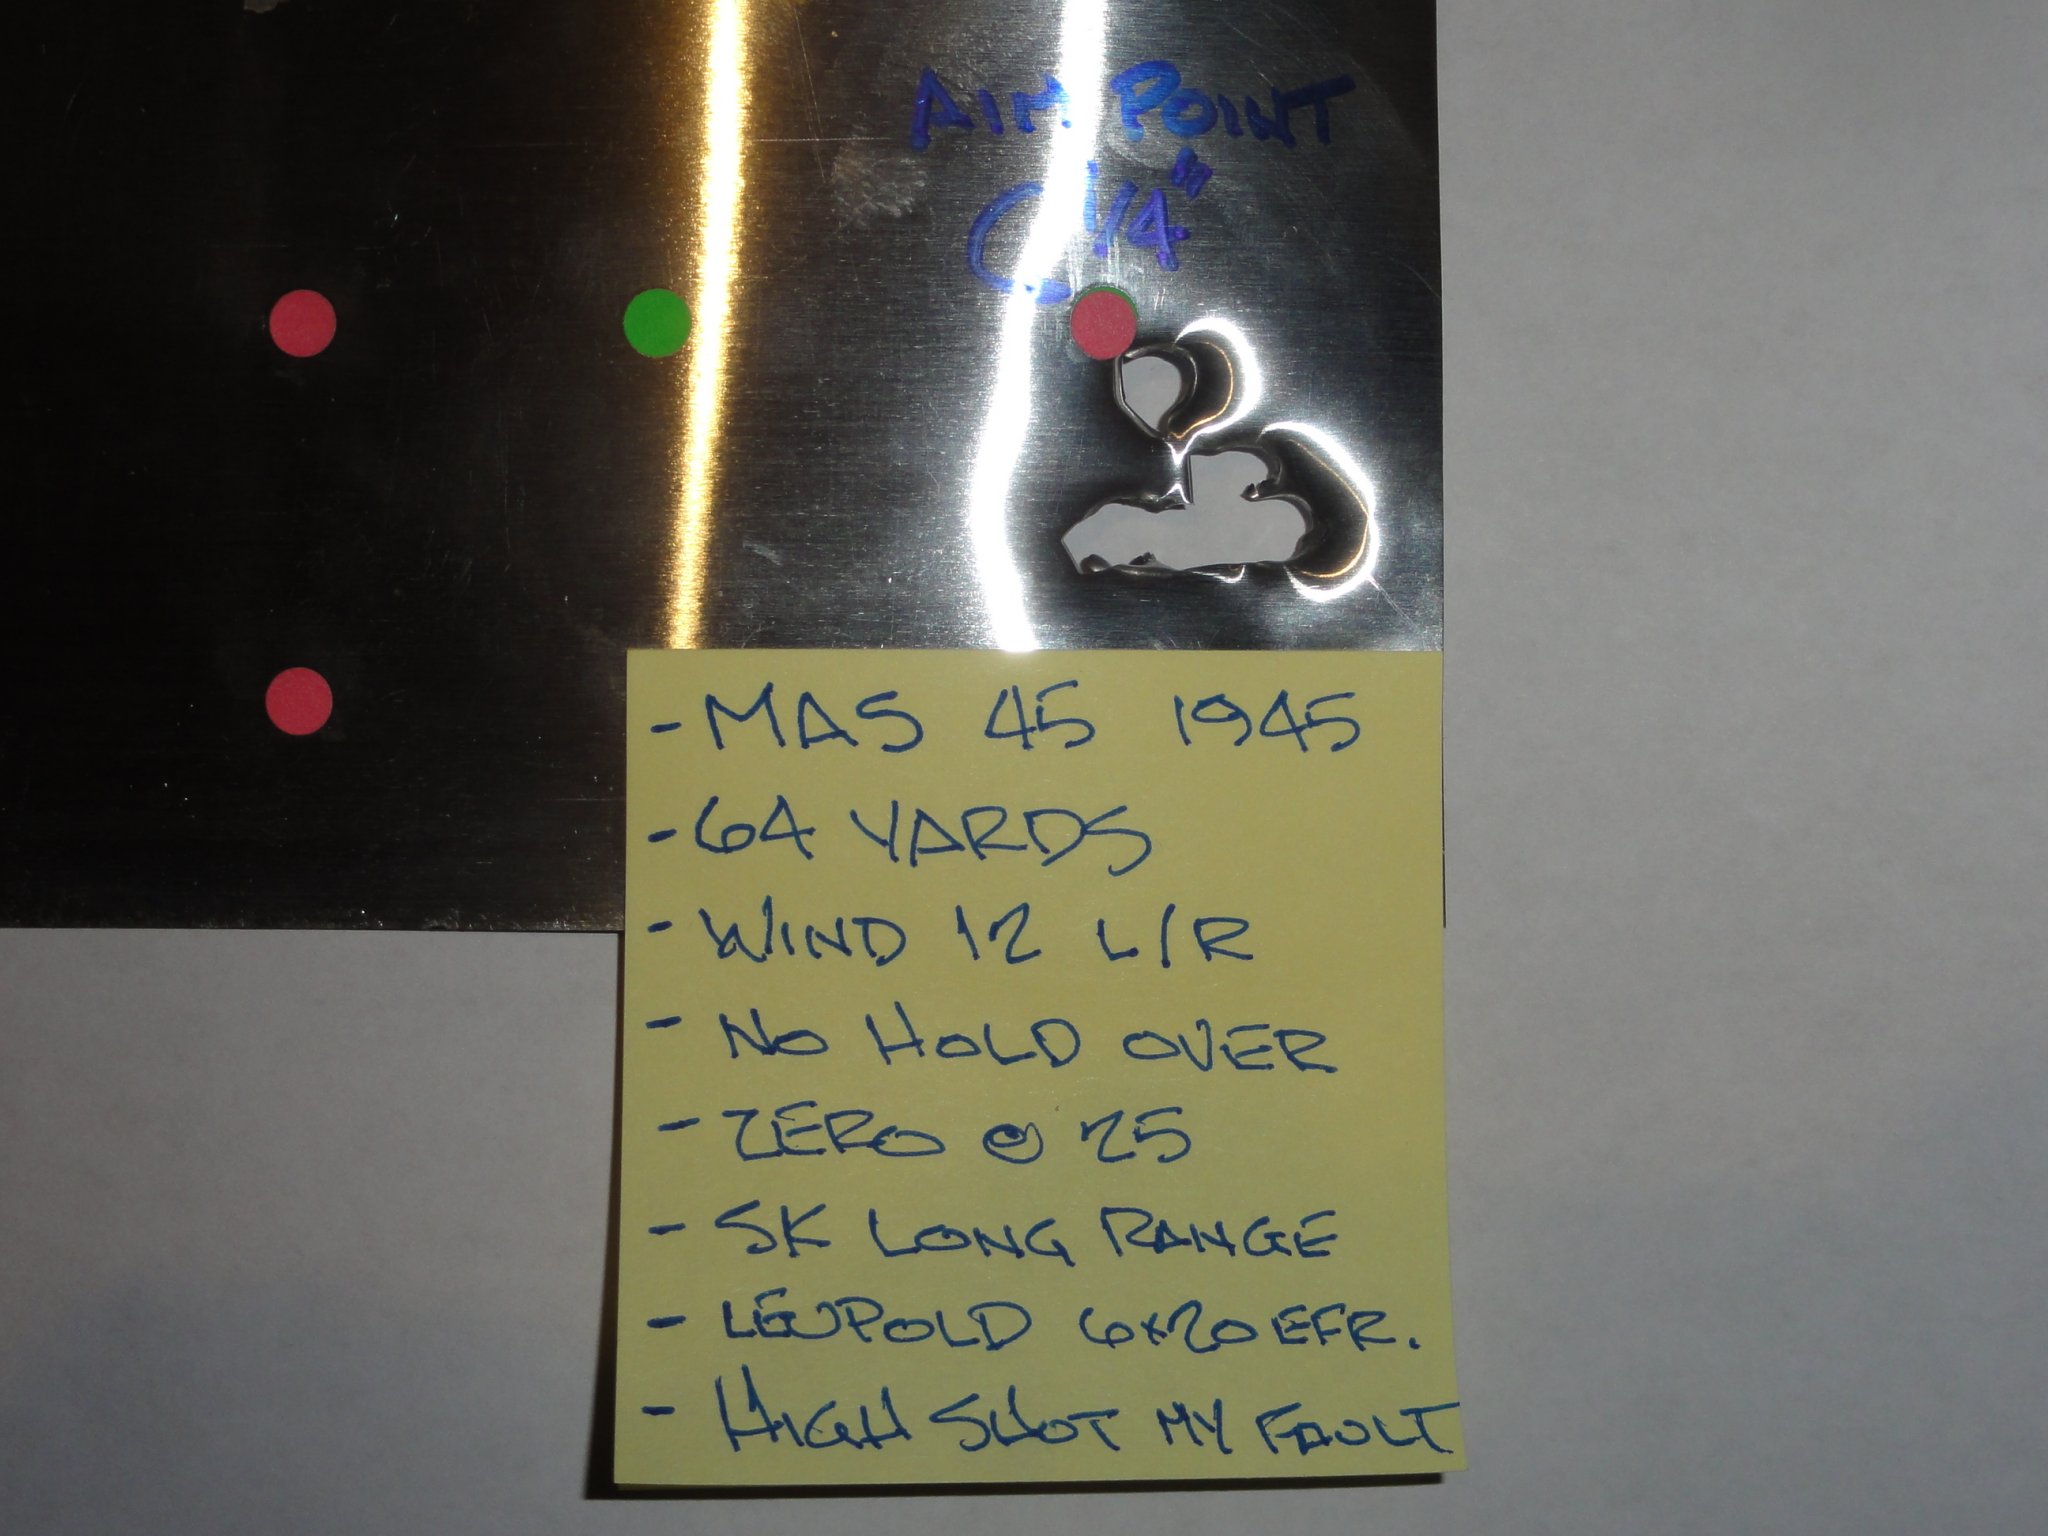 AIM POINT
@ 1/4"
- MAS 45 1945
- 64 YARDS
- WIND 12 L/R
- NO HOLD OVER
- ZERO @ 25
- SK LONG RANGE
- LEUPOLD 6x20 EFR.
- HIGH SHOT MY FAULT